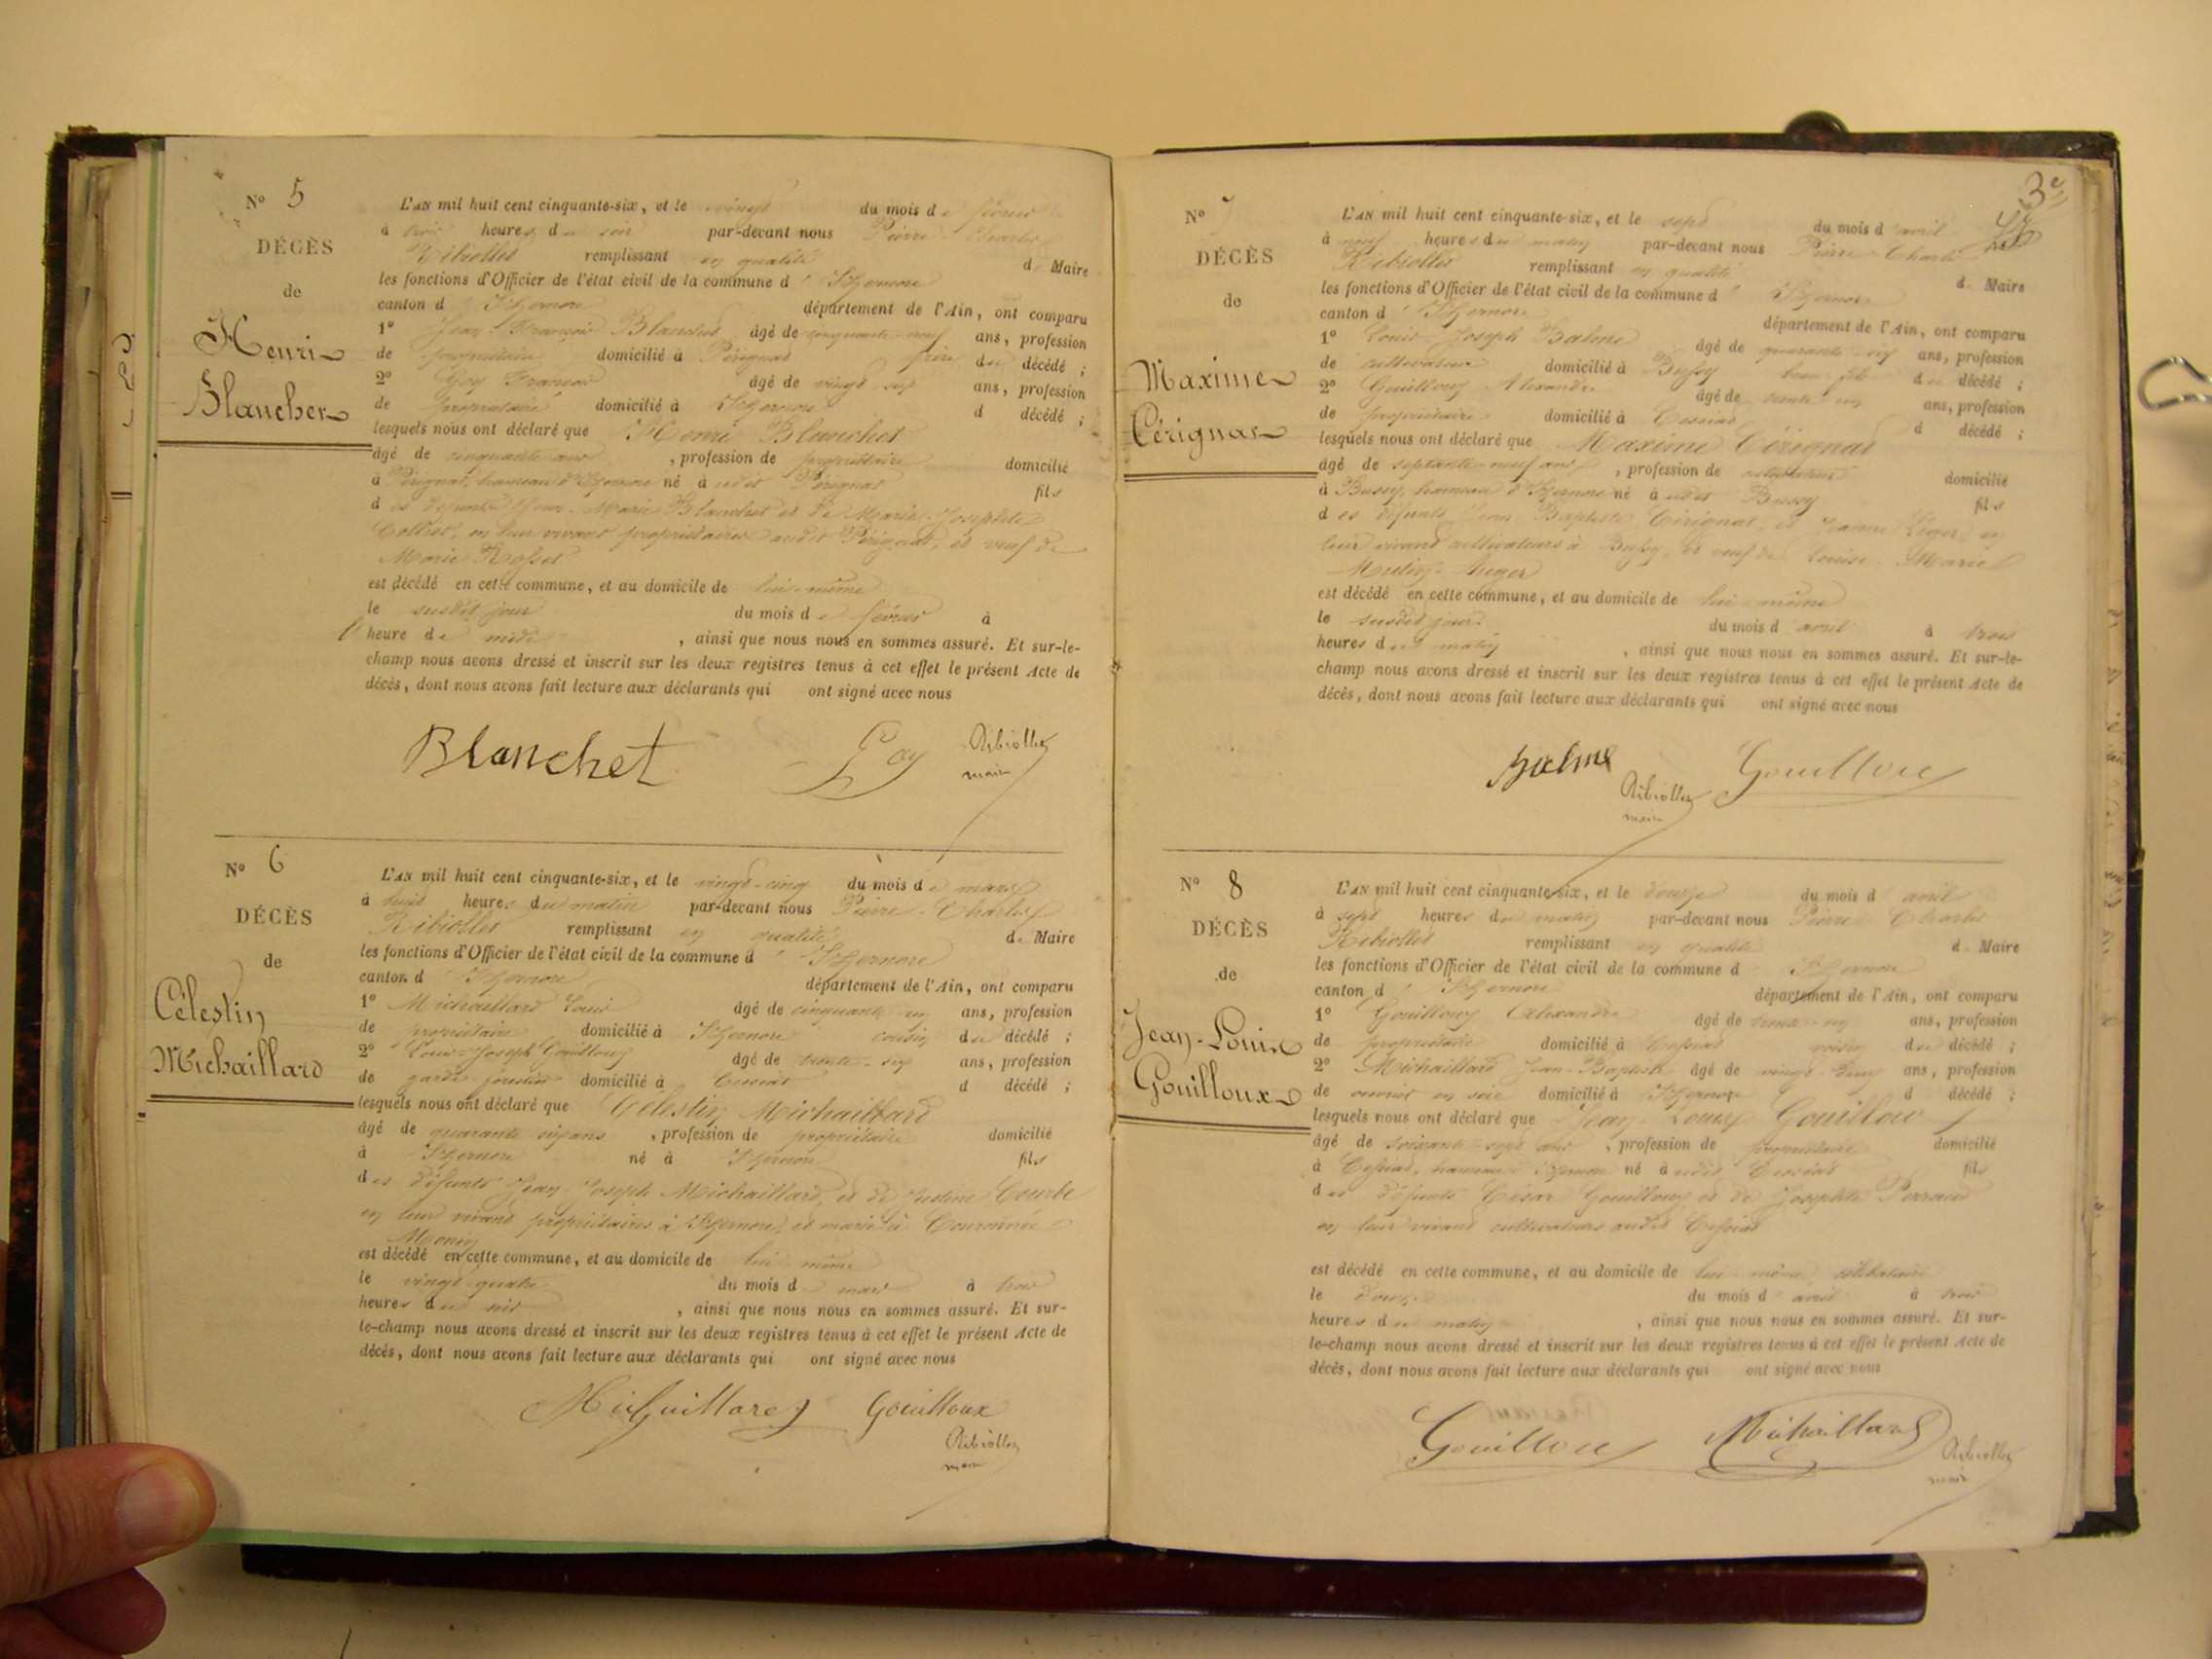 Nº 5
DÉCÈS
de
Henri
Blanchet
L'AN mil huit cent cinquante-six, et le vingt du mois de février
à trois heures du soir par-devant nous Pierre-Charles
Ribiollet remplissant en qualité de Maire
les fonctions d'Officier de l'état civil de la commune d'Izernore
canton d'Izernore département de l'Ain, ont comparu
1º Jean François Blanchet âgé de cinquante-neuf ans, profession
de propriétaire domicilié à Pérignat frère du décédé ;
2º Goy François âgé de vingt-six ans, profession
de propriétaire domicilié à Izernore d décédé ;
lesquels nous ont déclaré que Henri Blanchet
âgé de cinquante ans, profession de propriétaire domicilié
à Pérignat, hameau d'Izernore né à udit Pérignat fils
des défunts Marie Blanchet et de Marie-Josephte
Collet, en leur vivant propriétaires audit Pérignat, et veuf de
Marie Rosset
est décédé en cette commune, et au domicile de lui-même
le susdit jour du mois de février à
l'heure de midi, ainsi que nous nous en sommes assuré. Et sur-le-
champ nous avons dressé et inscrit sur les deux registres tenus à cet effet le présent Acte de
décès, dont nous avons fait lecture aux déclarants qui ont signé avec nous
Blanchet Goy Ribiollet
maire
Nº 6
DÉCÈS
de
Célestin
Michaillard
L'AN mil huit cent cinquante-six, et le vingt-cinq du mois de mars
à huit heures du matin par-devant nous Pierre-Charles
Ribiollet remplissant en qualité de Maire
les fonctions d'Officier de l'état civil de la commune d'Izernore
canton d'Izernore département de l'Ain, ont comparu
1º Michaillard Louis âgé de cinquante-un ans, profession
de propriétaire domicilié à Izernore cousin du décédé ;
2º Louis-Joseph Gouilloux âgé de trente-six ans, profession
de garde forestier domicilié à Cessiat d décédé ;
lesquels nous ont déclaré que Célestin Michaillard
âgé de quarante-six ans, profession de propriétaire domicilié
à Izernore né à Izernore fils
des défunts Jean-Joseph Michaillard, et de Justine Courbe
en leur vivant propriétaires à Izernore, et marié à Couronnée
Monin
est décédé en cette commune, et au domicile de lui-même
le vingt-quatre du mois de mars à trois
heures du soir, ainsi que nous nous en sommes assuré. Et sur-
le-champ nous avons dressé et inscrit sur les deux registres tenus à cet effet le présent Acte de
décès, dont nous avons fait lecture aux déclarants qui ont signé avec nous
Michaillard Gouilloux
Ribiollet
maire
3e
Nº 7
DÉCÈS
de
Maxime
Cérignat
L'AN mil huit cent cinquante-six, et le sept du mois d'avril
à neuf heures du matin par-devant nous Pierre-Charles
Ribiollet remplissant en qualité de Maire
les fonctions d'Officier de l'état civil de la commune d'Izernore
canton d'Izernore département de l'Ain, ont comparu
1º Louis-Joseph Balme âgé de quarante-six ans, profession
de cultivateur domicilié à Bussy beau-fils du décédé ;
2º Gouilloux Alexandre âgé de trente-un ans, profession
de propriétaire domicilié à Cessiat d décédé ;
lesquels nous ont déclaré que Maxime Cérignat
âgé de septante-neuf ans, profession de cultivateur domicilié
à Bussy, hameau d'Izernore né à udit Bussy fils
des défunts Jean-Baptiste Cérignat, et Jeanne Léger, en
leur vivant cultivateurs à Bussy, et veuf de Louise-Marie
est décédé en cette commune, et au domicile de lui-même
le susdit jour du mois d'avril à trois
heures du matin, ainsi que nous nous en sommes assuré. Et sur-le-
champ nous avons dressé et inscrit sur les deux registres tenus à cet effet le présent Acte de
décès, dont nous avons fait lecture aux déclarants qui ont signé avec nous
Balme Gouilloux
Ribiollet
maire
Nº 8
DÉCÈS
de
Jean-Louis
Gouilloux
L'AN mil huit cent cinquante-six, et le douze du mois d'avril
à sept heures du matin par-devant nous Pierre Charles
Ribiollet remplissant en qualité de Maire
les fonctions d'Officier de l'état civil de la commune d'Izernore
canton d'Izernore département de l'Ain, ont comparu
1º Gouilloux Alexandre âgé de trente-un ans, profession
de propriétaire domicilié à Cessiat voisin du décédé ;
2º Michaillard Jean-Baptiste âgé de vingt-deux ans, profession
de ouvrier en soie domicilié à Izernore d décédé ;
lesquels nous ont déclaré que Jean-Louis Gouilloux
âgé de soixante-sept ans, profession de propriétaire domicilié
à Cessiat, hameau d'Izernore né à udit Cessiat fils
des défunts César Gouilloux et de Josephte Perraud
en leur vivant cultivateurs audit Cessiat
est décédé en cette commune, et au domicile de lui-même, célibataire
le douze du mois d'avril à trois
heures du matin, ainsi que nous nous en sommes assuré. Et sur-
le-champ nous avons dressé et inscrit sur les deux registres tenus à cet effet le présent Acte de
décès, dont nous avons fait lecture aux déclarants qui ont signé avec nous
Gouilloux Michaillard Ribiollet
maire